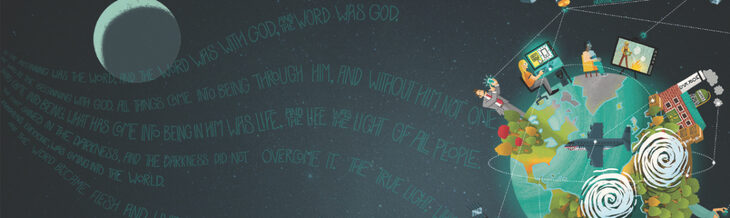 BEGINNING WAS THE WORD, AND THE WORD WAS WITH GOD, AND THE WORD WAS GOD.
IN THE BEGINNING WITH GOD. ALL THINGS COME INTO BEING THROUGH HIM, AND WITHOUT HIM NOT ONE
BEING, WHAT HAS COME INTO BEING IN HIM WAS LIFE, AND THE LIFE WAS THE LIGHT OF ALL PEOPLE.
IN THE DARKNESS, AND THE DARKNESS DID NOT OVERCOME IT. THE TRUE LIGHT
COMING INTO THE WORLD.
THE WORD BECAME FLESH AND